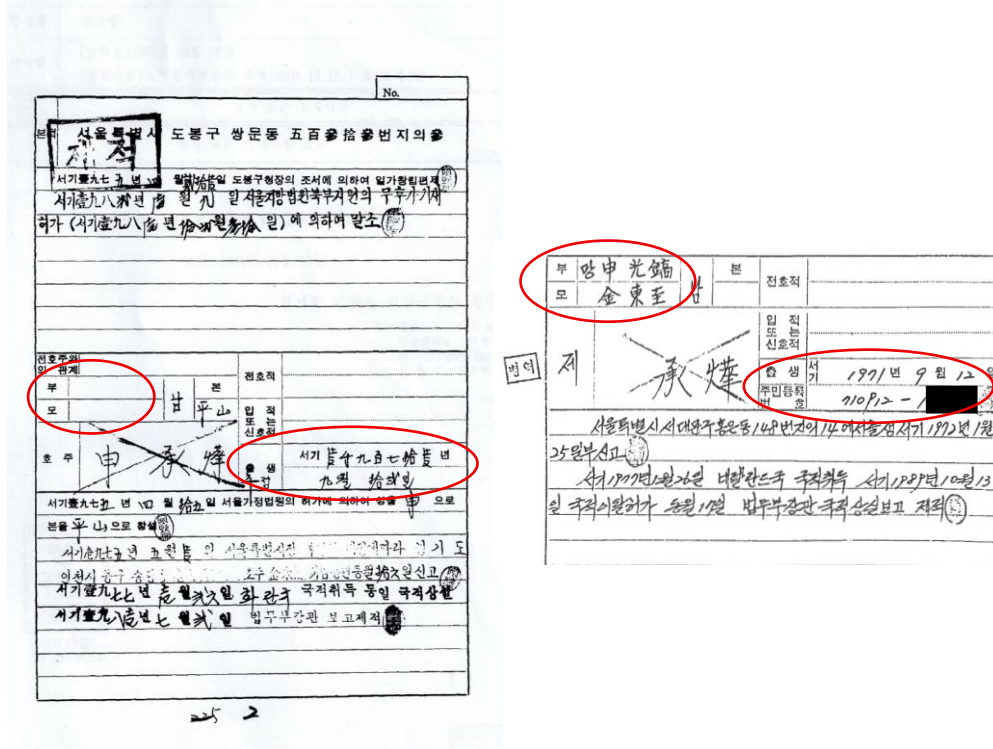 No.
본적 서울특별시 도봉구 쌍문동 五百參拾參번지의參
제적
서기壹九七五年 四월 일 도봉구청장의 조서에 의하여 일가창립편제
서기壹九八 년 월 九 일 서울지방법원북부지원의 무후가기재
허가 (서기壹九八壹년 월 일)에 의하여 말소
전호주와의 관계
부
모
甘
본
平山
전호적
입적 또는 신호적
호주 申 承 燁
출생
서기 壹千九百七拾壹년
九월 拾貳일
서기壹九七五년 四 월 拾五일 서울가정법원의 허가에 의하여 성을 申 으로
본을 平山으로 창설
서기壹九七五년 五월 일 서울특별시장
신고
서기壹九七七년 壹월 貳六일 화란국 국적취득 동일 국적상실
서기壹九八壹년 七 월 貳 일 법무부장관 보고제적
225 2
부 망申光鎬
모 金東至
남
본
전호적
병역
제
承 燁
입적 또는 신호적
출생 서기 1971년 9월 12일
주민등록번호 710912-1
서울특별시서대문구홍은동148번지의14에서출생 서기1972년1월
25일부신고
서기1977년1월26일 네델란드국 국적취득 서기1989년10월13
일 국적이탈허가 동월17일 법무부장관국적상실보고 제적